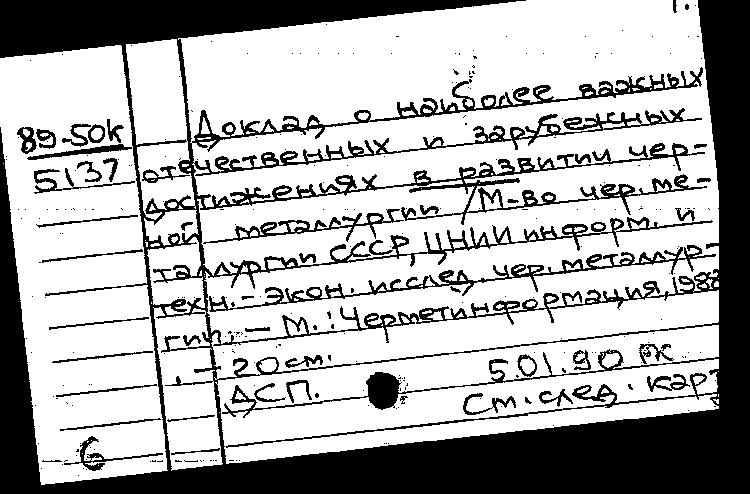 1.
89-50к
5137
Доклад о наиболее важных
отечественных и зарубежных
достижениях в развитии чер-
ной металлургии / М-во чер. ме-
таллургии СССР, ЦНИИ информ. и
техн.-экон. исслед. чер. металлур-
гии. - М.: Черметинформация, 1988
. - 20 см.
ДСП.
5.01.90 РК
См. след. карт
6